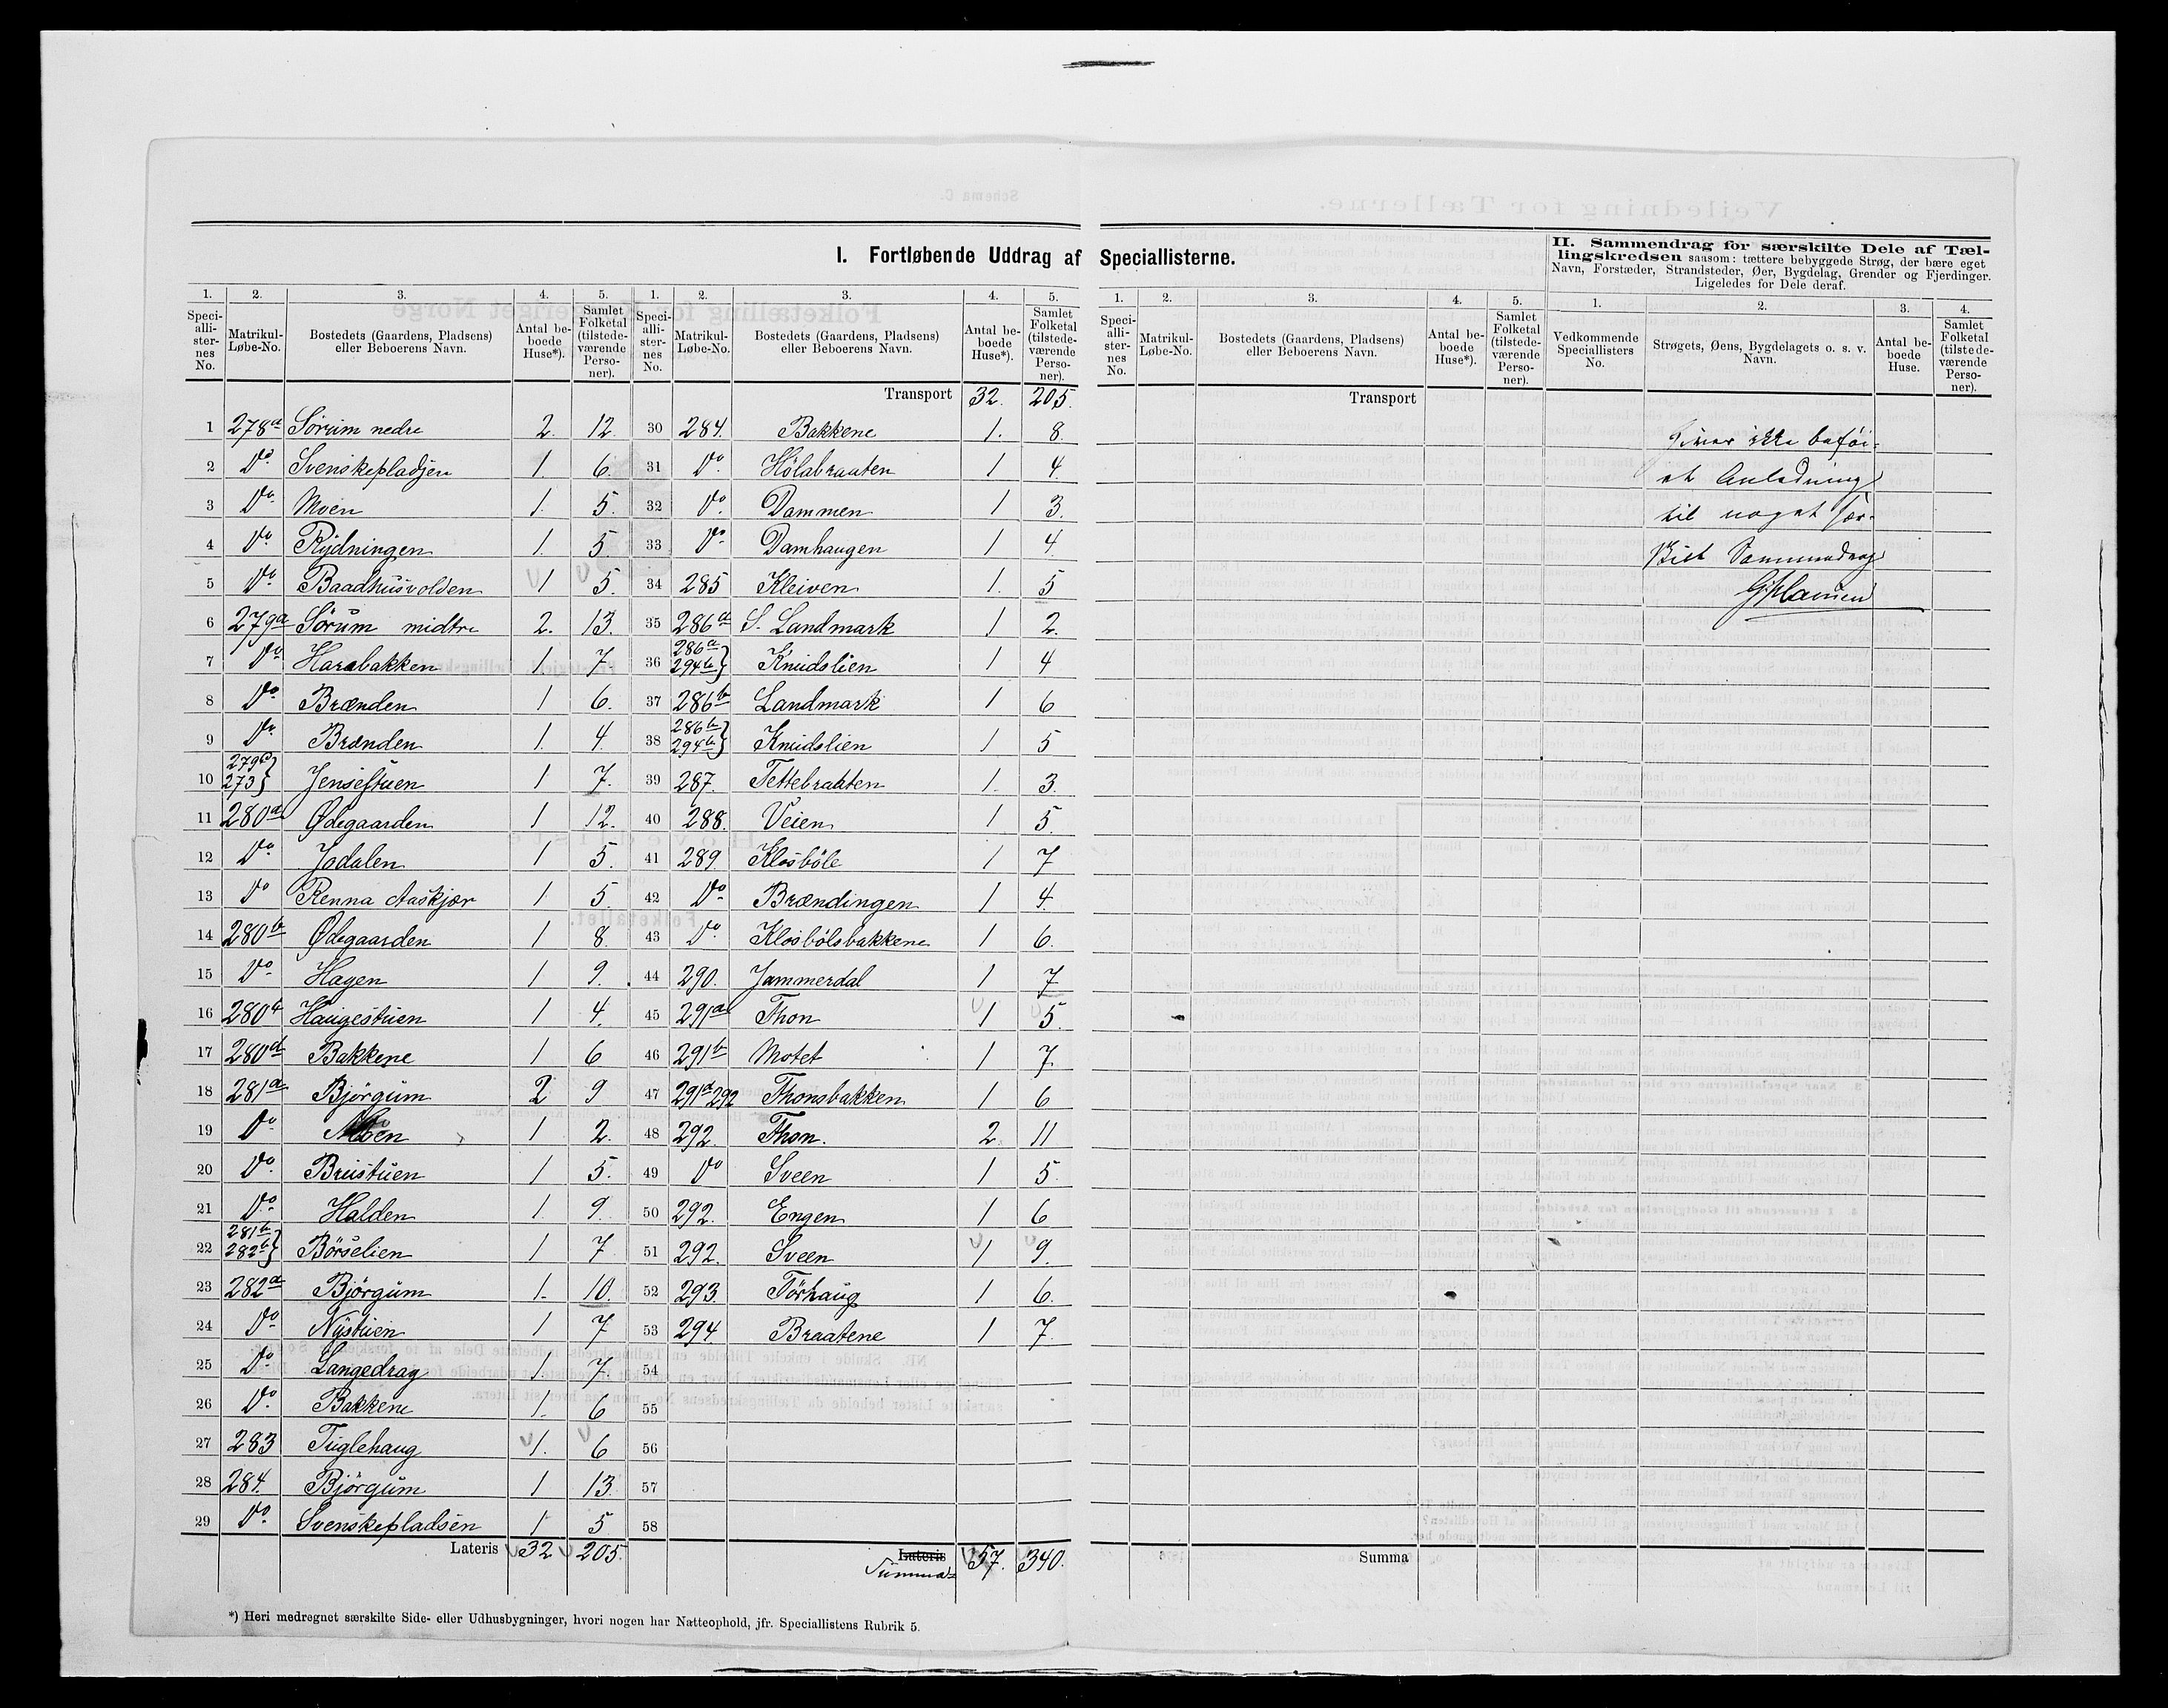 I. Fortløbende Uddrag af Speciallisterne.
1. 2. 3. 4. 5. 1. 2. 3. 4. 5.
Speciallisternes No. Matrikul-Løbe-No. Bostedets (Gaardens, Pladsens) eller Beboerens Navn. Antal beboede Huse*). Samlet Folketal (tilstedeværende Personer). Speciallisternes No. Matrikul-Løbe-No. Bostedets (Gaardens, Pladsens) eller Beboerens Navn. Antal beboede Huse*). Samlet Folketal (tilstedeværende Personer).
1 278a Sørum nedre 2. 12.
2 Do Svenskepladsen 1. 6.
3 Do Moen 1. 5.
4 Do Rydningen 1. 5.
5 Do Baadhusvolden 1 5.
6 279a Sörum midtre 2. 13.
7 Do Harabakken 1. 7
8 Do Brænden 1 6.
9 Do Brænden 1. 4.
10 279b 273 Jensestuen 1 7.
11 280a Ødegaarden 1 12.
12 Do Jodalen 1 5.
13 Do Renna Aaskjær 1 5.
14 280b Ødegaarden 1 8.
15 Do Hagen 1 9.
16 280 Haugestuen 1 4.
17 280d Bakkene 1 6
18 281a Bjørgum 2 9
19 Do Moen 1 2.
20 Do Breistuen 1 5.
21 Do Halden 1. 9.
22 281b 282b Börselien 1 7
23 282a Bjørgum 1. 10.
24 Do Nystuen 1 7
25 Do Langedrag 1. 7
26 Do Bakkene 1. 6
27 283 Tuglehaug 1. 6
28 284. Bjørgum 1 13.
29 Do Svenskepladsen 1 5
Lateris 32 205.
Transport 32. 205.
30 284. Bakkene 1. 8.
31 Do Hölabraaten 1 4.
32 Do Dammen 1 3.
33 Do Damhaugen 1 4.
34 285 Kleiven 1. 5
35 286a S. Landmark 1 2.
36 286a 294b Knudslien 1 4
37 286b Landmark 1 6
38 286b 294b Knudslien 1 5
39 287. Tettebraaten 1. 3.
40 288. Veien 1 5.
41 289 Klosböle 1 7
42 Do Brændingen 1 4.
43 Do Klosbölsbakkene 1 6.
44 290. Jammerdal 1 7
45 291a Thon 1 5.
46 291b Motet 1 7.
47 291a 292 Thonsbakken 1 6
48 292. Thon. 2. 11
49 Do Sveen 1 5
50 292. Engen 1 6
51 292. Sveen 1 9.
52 293. Törhaug 1 6.
53 294 Braatene 1 7.
54
55
56
57
58
Lateris
Summa 57. 340.
*) Heri medregnet særskilte Side- eller Udhusbygninger, hvori nogen har Natteophold, jfr. Speciallistens Rubrik 5.
1. 2. 3. 4. 5.
Speciallisternes No. Matrikul-Løbe-No. Bostedets (Gaardens, Pladsens) eller Beboerens Navn. Antal beboede Huse*). Samlet Folketal (tilstedeværende Personer).
Transport
Summa
II. Sammendrag for særskilte Dele af Tællingskredsen saasom: tættere bebyggede Strøg, der bære eget
Navn, Forstæder, Strandsteder, Øer, Bygdelag, Grender og Fjerdinger.
Ligeledes for Dele deraf.
1. 2. 3. 4.
Vedkommende Speciallisters No. Strøgets, Øens, Bygdelagets o. s. v. Navn. Antal beboede Huse. Samlet Folketal (tilstedeværende Personer).
ikke beføi-
et Anledning
til noget sær-
skilt Sammendrag